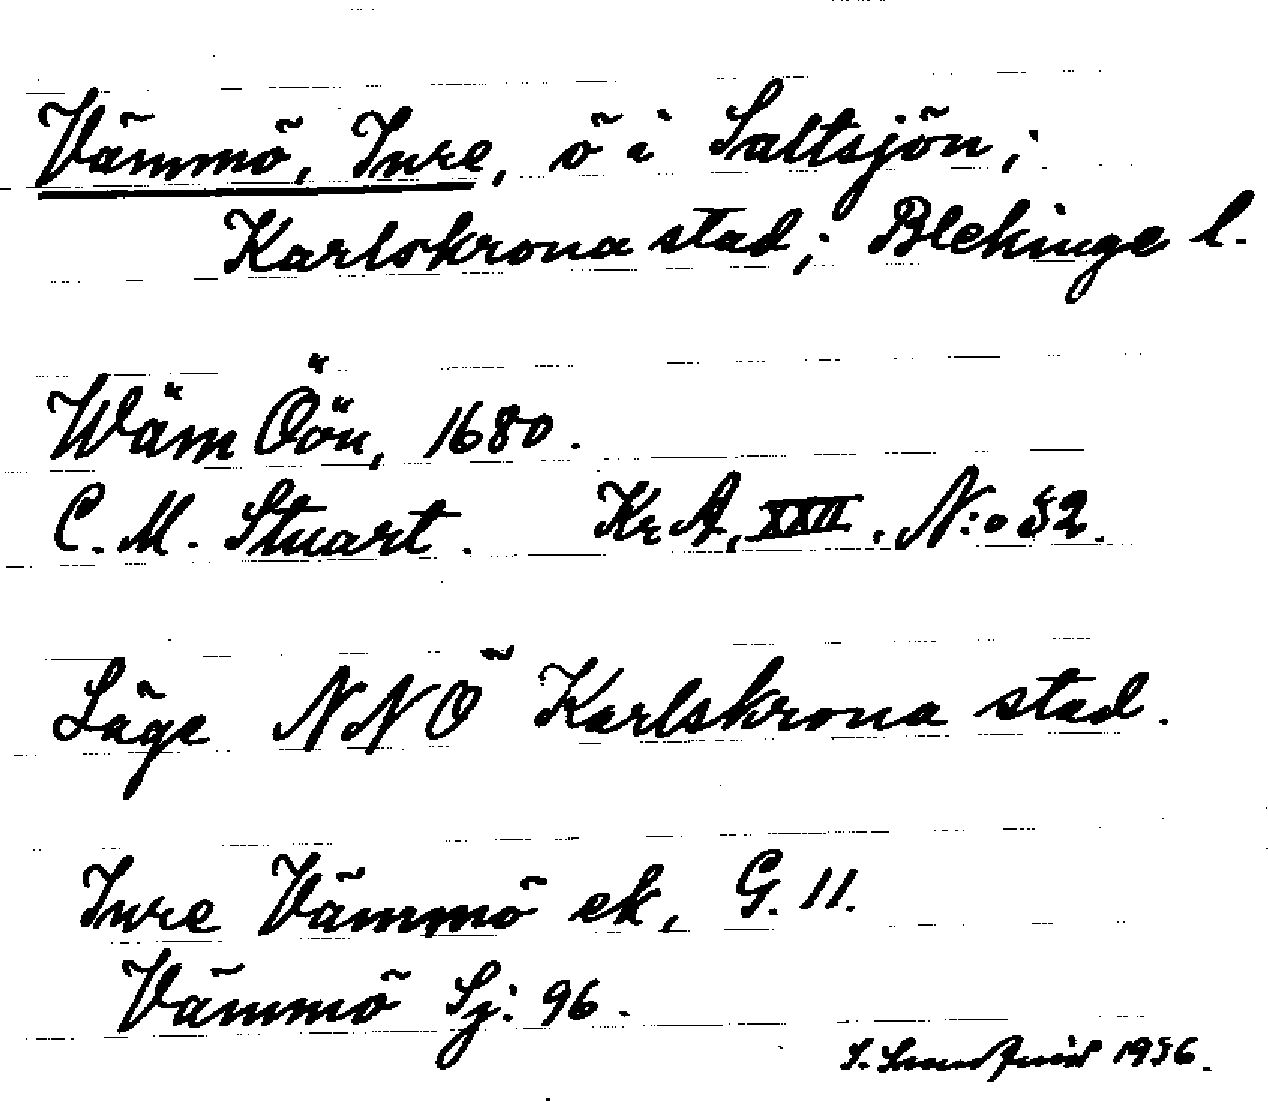 Vämmö, Inre, ö i Saltsjön;
Karlskrona stad; Blekinge l.
Wäm Öön, 1680.
C. M. Stuart. KrA, XXII, N:o 52.
Läge NNÖ Karlskrona stad.
Inre Vämmö ek, G. 11.
Vämmö Sj: 96.
1956.